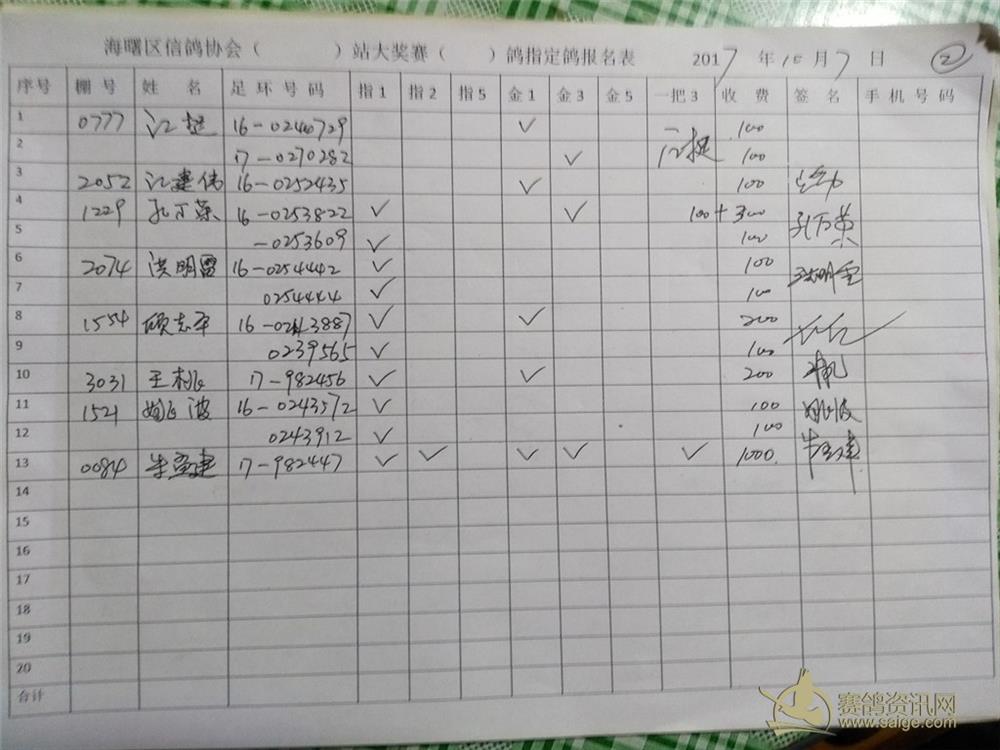 海曙区信鸽协会（ ）站大奖赛（ ）鸽指定鸽报名表 2017 年 10 月 7 日 ②
序号 棚 号 姓 名 足 环 号 码 指1 指2 指5 金1 金3 金5 一把3 收 费 签 名 手 机 号 码
1 0777 江挺 16-0240729 ✓ 100
2 17-0270282 ✓ 江挺 100
3 2052 江建伟 16-0252435 ✓ 100
4 1229 孔万荣 16-0253822 ✓ ✓ 100+300 孔万荣
5 -0253609 ✓ 100
6 2074 洪明雷 16-0254442 ✓ 100 洪明雷
7 0254444 ✓ 100
8 1554 顾志平 ✓ ✓ 200
9 0239565 ✓ 100
10 3031 17-982456 ✓ ✓ 200
11 1521 16-0243572 ✓ 100
12 0243912 ✓ 100
13 0084 17-982447 ✓ ✓ ✓ ✓ ✓ 1000
14
15
16
17
18
19
20
合计
赛鸽资讯网
www.saige.com